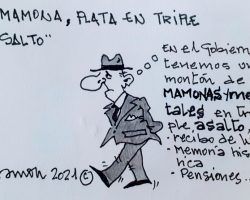 MAMONA, PLATA EN TRIPLE
SALTO"
EN EL GObierno
tenemos un
montón de
MAMONAS/me
tales en tri
ple, asalto.
- recibo de lu
- Memoria his
tórica.
- Pensiones...
amón 2021 ©